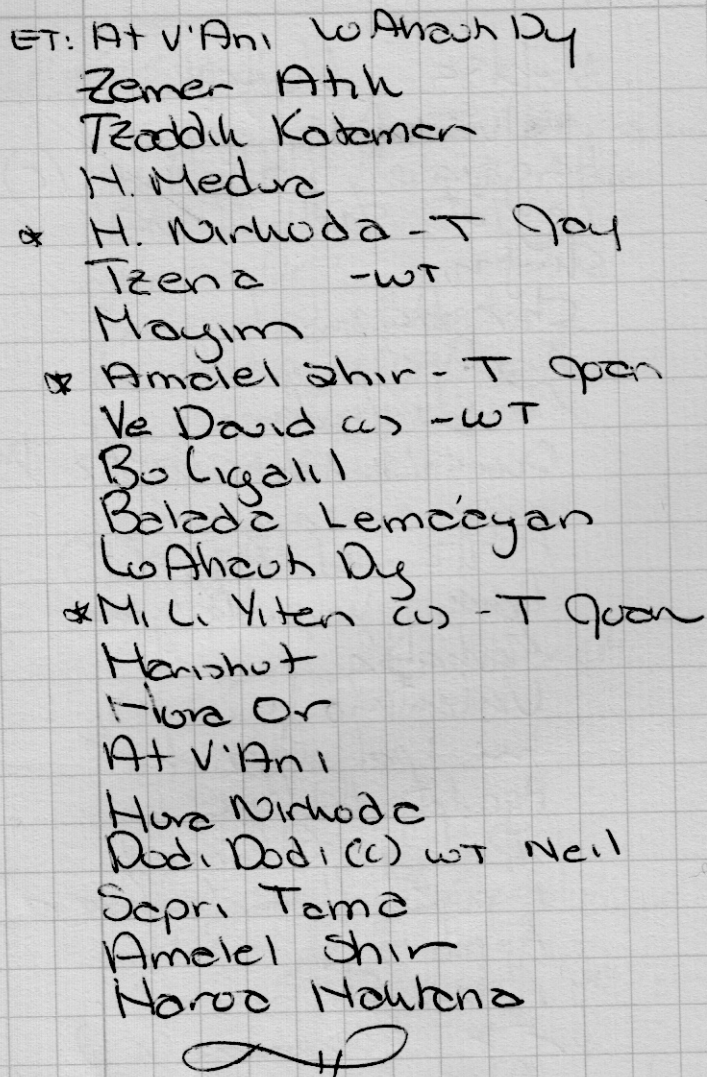 ET: At V'Ani Lo Ahavh Dy
Zemer Atik
Tzaddik Katamar
H. Medura
* H. Nirkoda - T Joy
Tzena - WT
Mayim
* Amalel Shir - T Joan
Ve David (c) - WT
Bo Ligalil
Balada Lema'ayan
Lo Ahavh Dy
* Mi Li Yiten (c) - T Joan
Harishut
Hora Or
At V'Ani
Hora Nirkoda
Dodi Dodi (c) WT Neil
Sapri Tama
Amalel Shir
Haroa Haktana